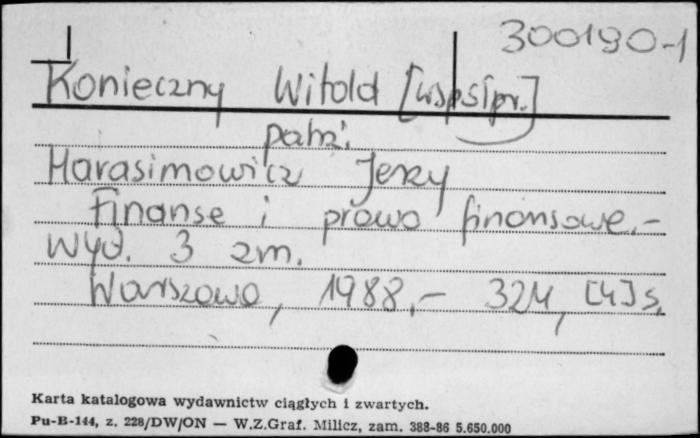 300190-1
Konieczny Witold [współpr.]
patrz:
Harasimowicz Jerzy
Finanse i prawo finansowe.-
Wyd. 3 zm.
Warszawa, 1988.- 324, [4] s.
Karta katalogowa wydawnictw ciągłych i zwartych.
Pu-B-144, z. 228/DW/ON — W.Z.Graf. Milicz, zam. 388-86 5.650.000